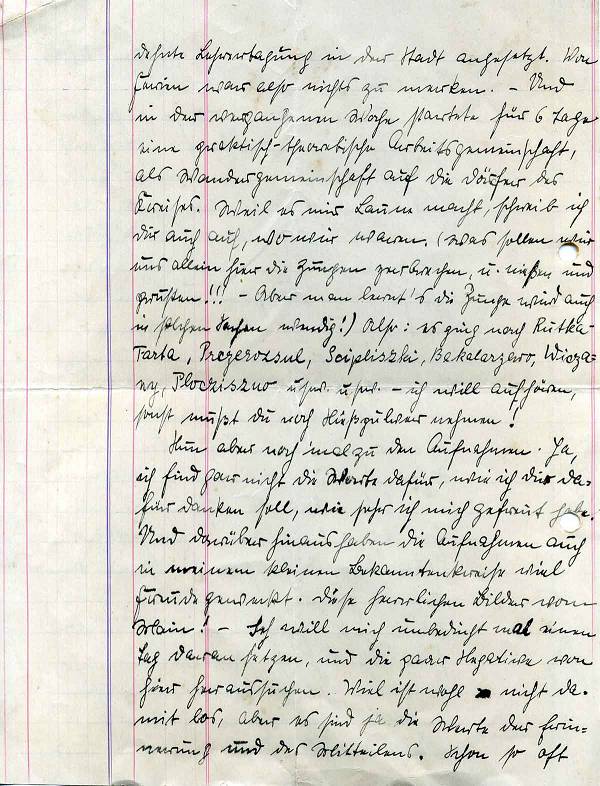 dehnte Lehrertagung in der Stadt angesetzt. Von
Ferien war also nichts zu merken. – Und
in der vergangenen Woche startete für 6 Tage
eine praktisch-theoretische Arbeitsgemeinschaft,
als Wandergemeinschaft auf die Dörfer des
Kreises. Weil es mir Laune macht, schreib ich
dir auch auf, wo wir waren. (Was sollen wir
uns allein hier die Zungen zerbrechen, u. niesen und
prusten!!! – Aber man lernt's die Zunge wird auch
in solchen Sachen wendig!) Also: es ging nach Rutka-
Tarta, Pregerozsul, Scipliszki, Bakalarzewo, Wiczay-
ny, Plocziszno usw. usw. – ich will aufhören,
sonst mußt du noch Nießpulver nehmen!
Nun aber noch mal zu den Aufnahmen. Ja,
ich find gar nicht die Worte dafür, wie ich dir da-
für danken soll, wie sehr ich mich gefreut habe.
Und darüber hinaus haben die Aufnahmen auch
in meinem kleinen Bekanntenkreise viel
Freude geweckt. Diese herrlichen Bilder vom
Main! – Ich will mich unbedingt mal einen
Tag daran setzen, und die paar Negative von
hier heraussuchen. Viel ist wohl nicht da-
mit los, aber es sind ja die Werte der Erin-
nerung und des Mitteilens. Schon so oft